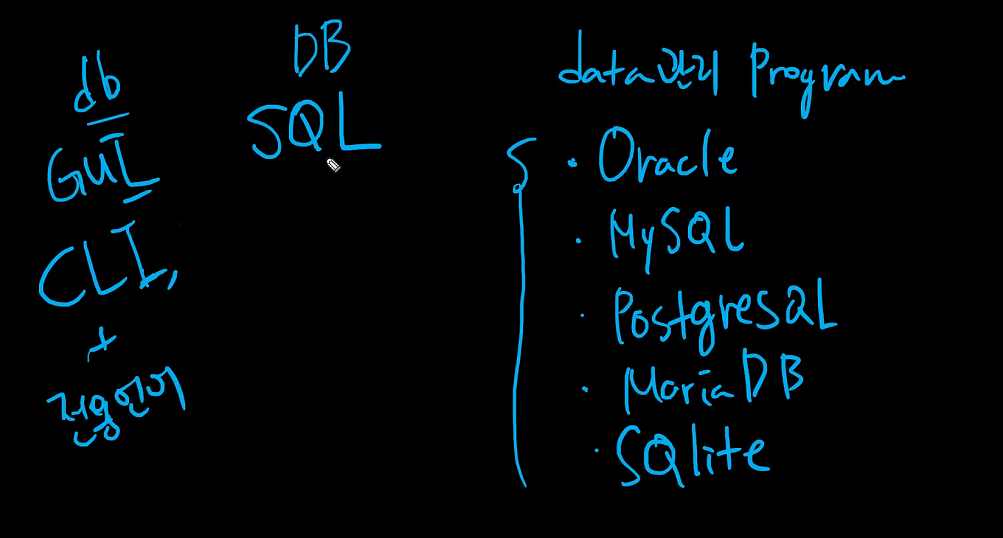 db
GUI
CLI,
+
DB
SQL
data관리 Program
· Oracle
· MySQL
· PostgreSQL
· MariaDB
· SQlite